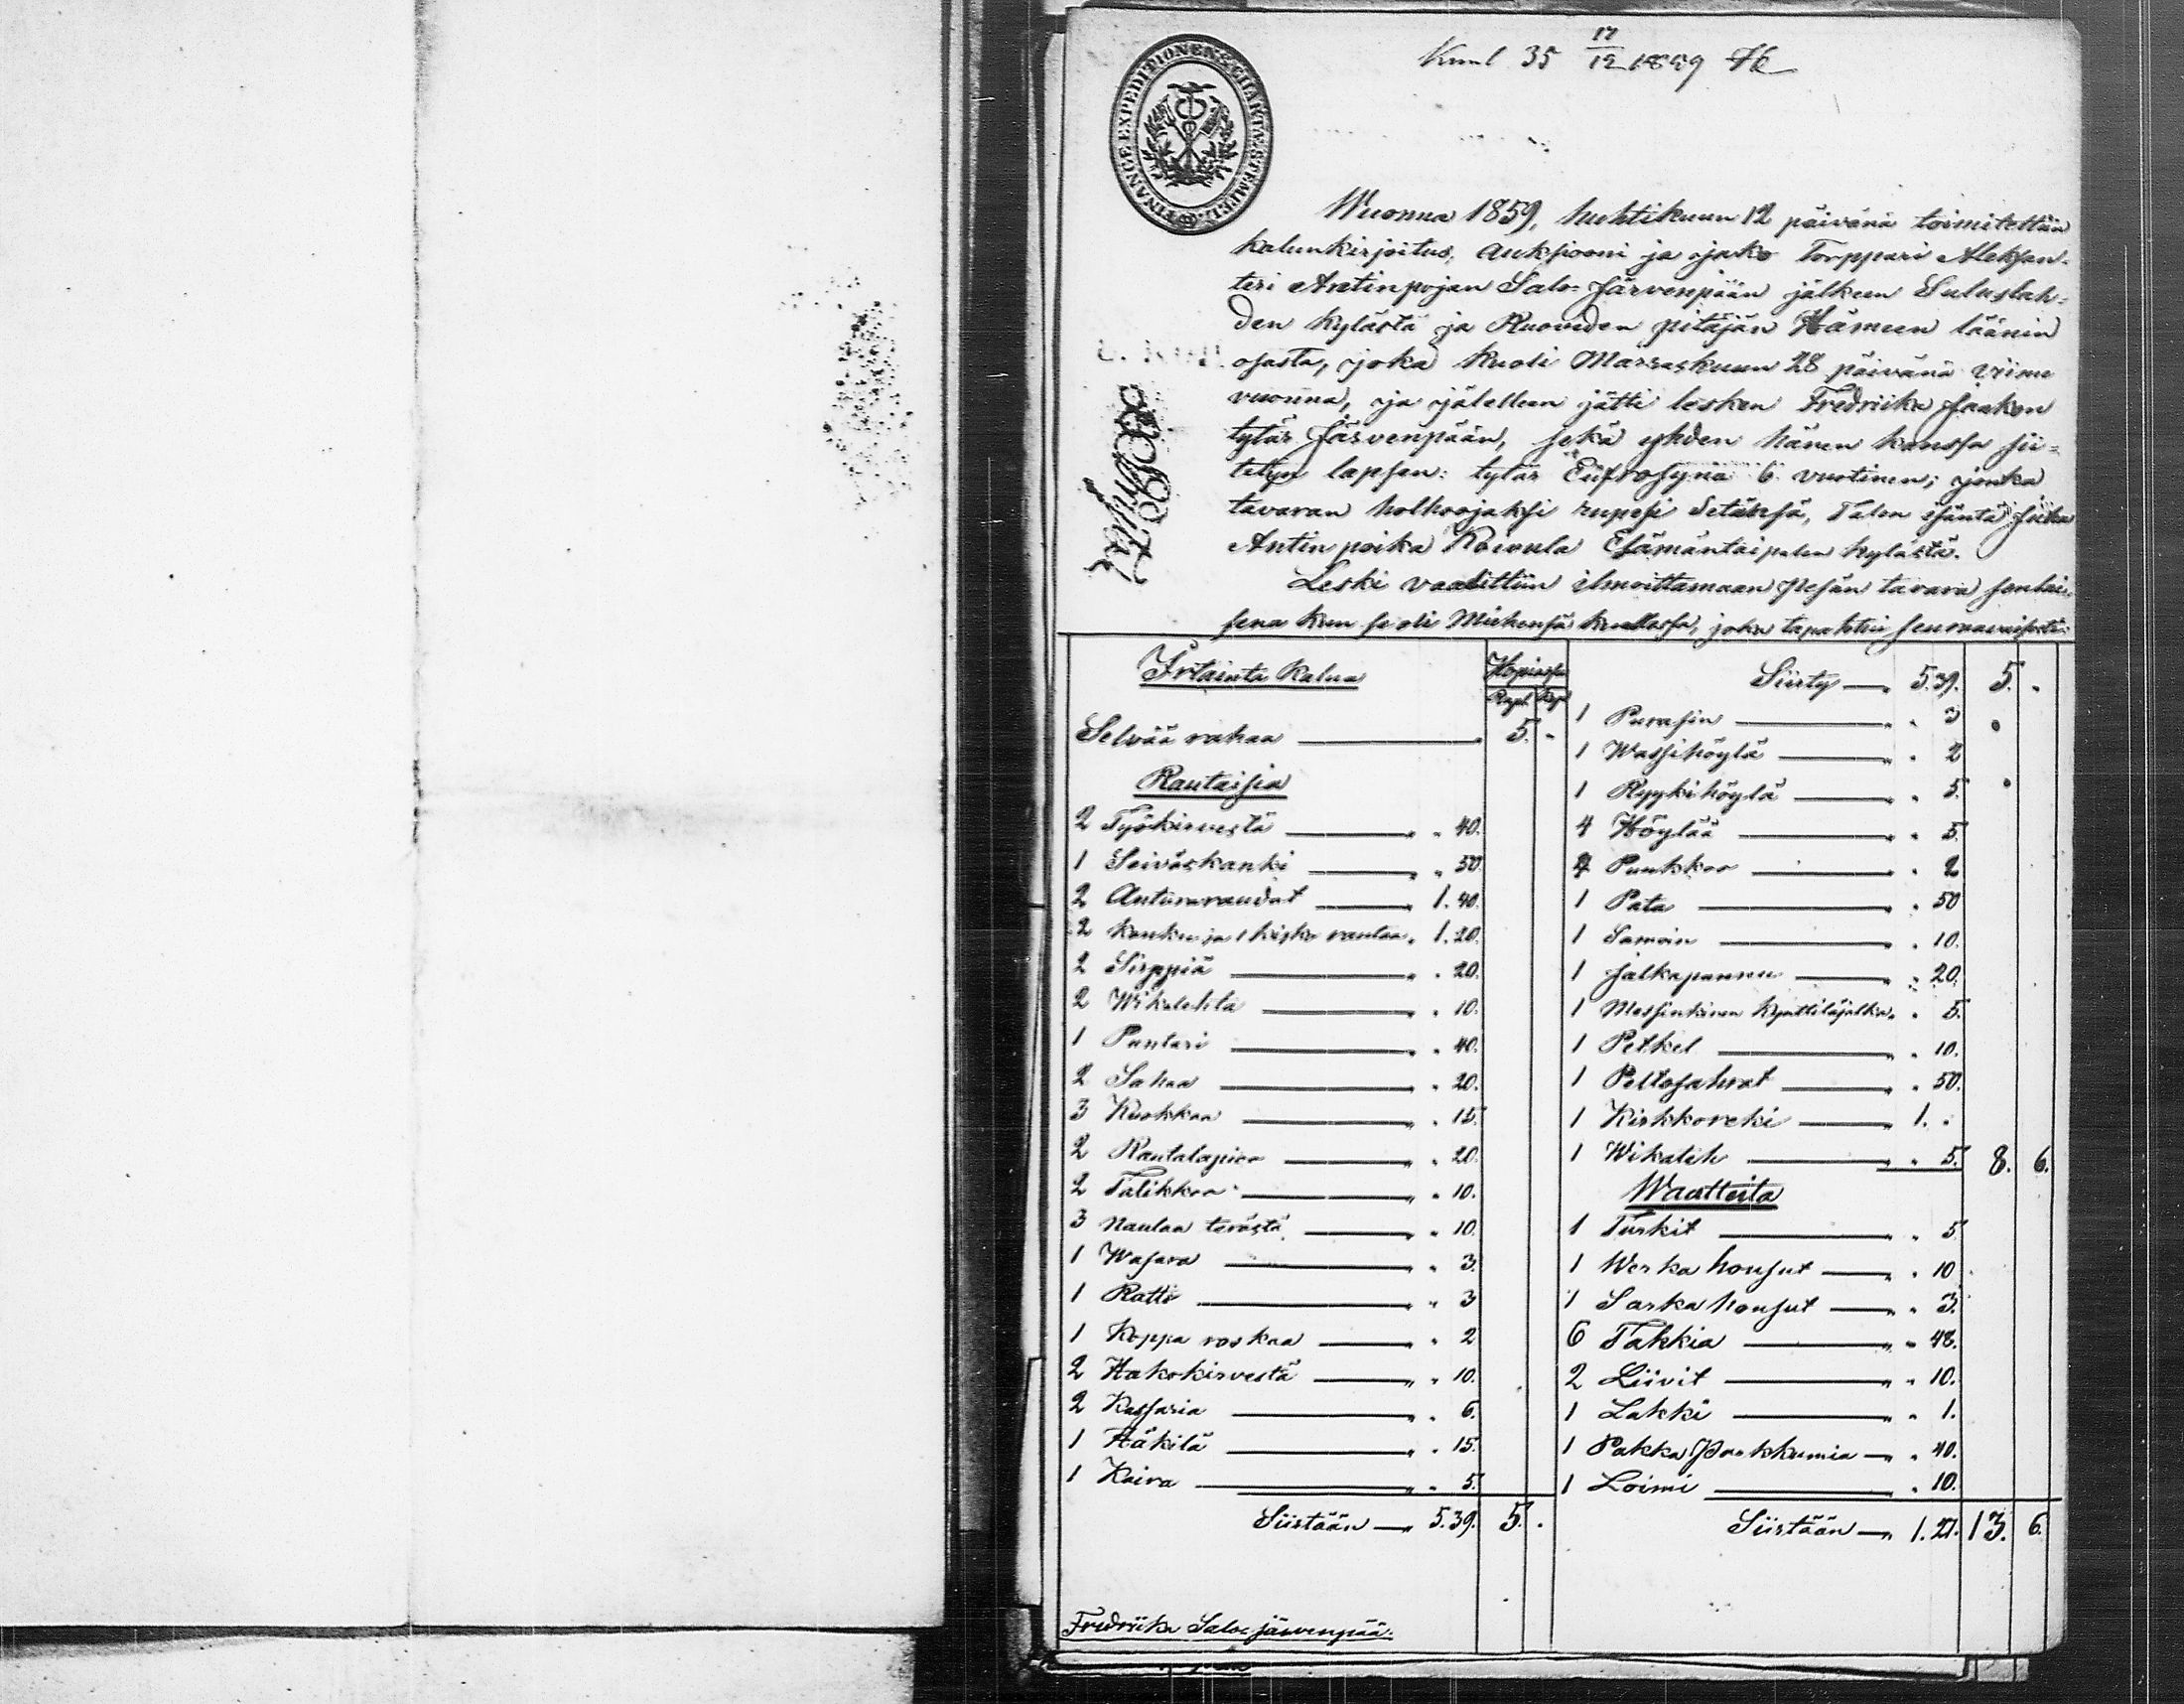 17
Kuul 35 12 1889
FINANCE EXPEDITIONENS CHARTÆ STEMPEL
Wuonna 1859, huhtikuun 12 päivänä toimitettiin
kalunkirjoitus, auksiooni ja jako Torppari Aleksan-
teri Antinpojan Salo-Järvenpään jälkeen Suluslah-
den kylästä ja Ruoveden pitäjän Hämeen läänin
osasta, joka kuoli Marraskuun 28 päivänä viime
vuonna, ja jälelleen jätti lesken Fredriika Jaakon
tytär Järvenpään, sekä yhden hänen kanssa sii-
tetyn lapsen: tytär Eufrosyna 6 vuotinen; jonka
tavaran holhoojaksi rupesi Setänsä, Talon isäntä
Antin poika Koivula Elämäntaipalen kylästä.
Leski vaadittiin ilmoittamaan Pesän tavara senlai-
sena kun se oli Miehensä kuollessa, joka tapahtui seuraavaisesti:
Irtainta Kalua Hopiassa
Rupl. Kop.
Selvää rahaa 5. -
Rautaisia
2 Työkirvestä " 40.
1 Seiväskanki " 50
2 Anturaraudat 1. 40.
2 kankea ja 1 kisko rautaa 1. 20.
2 Sirppiä " 20.
2 Wikatehta " 10.
1 Puntari " 40.
2 Sahaa " 20.
3 Kuokkaa " 15.
2 Rautalapioo " 20.
2 Talikkoa " 10.
3 naulaa terästä " 10.
1 Wasara " 3.
1 Ratti " 3
1 Koppa roskaa " 2
2 Hakokirvestä " 10.
2 Kassaria " 6.
1 Häkilä " 15.
1 Kaira " 5.
Siirtään 5.39. 5. -
Siirty 5.39. 5. -
1 Purasin " 3
1 Wassihöylä " 2
1 Ryykihöylä " 5.
4 Höylää " 5.
4 Puukkoo " 2
1 Pata " 50
1 Samoin " 10.
1 Jalkapannu " 20.
1 Messinkinen kynttiläjalka " 5.
1 Petkel " 10.
1 Peltosahrat " 50.
1 Kirkkoreki 1. -
1 Wikateh " 5. 8. 6.
Waatteita
1 Turkit " 5
1 Werka housut " 10
1 Sarka housut " 3.
6 Takkia " 48.
2 Liivit " 10.
1 Lakki " 1.
1 Pakka Parkkumia " 40.
1 Loimi " 10.
Siirtään 1. 27. 13. 6.
Fredriika Salo-järvenpää.